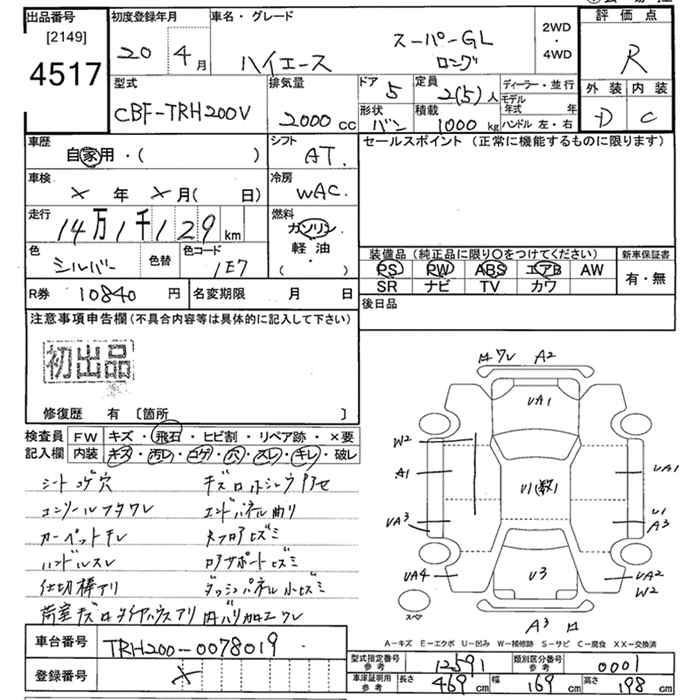 出品番号
[2149]
4517
初度登録年月
20 4月
車名・グレード
ハイエース スーパーGL ロング
2WD・4WD
評価点
R
型式
CBF-TRH200V
排気量
2000cc
ドア 5
形状 バン
定員 2(5)人
積載 1000kg
ディーラー・並行
モデル年式 年
ハンドル 左・右
外装 内装
D C
車歴
自家用・( )
シフト
AT.
セールスポイント (正常に機能するものに限ります)
車検
× 年 × 月( 日)
冷房
WAC.
走行
14万1千129km
燃料
ガソリン
軽油
・( )
色
シルバー
色替
色コード
1E7
装備品 (純正品に限り〇をつけてください)
PS PW ABS エアB AW
SR ナビ TV カワ
新車保証書
有・無
R券 10840円
名変期限 月 日
後日品
注意事項申告欄 (不具合内容等は具体的に記入して下さい)
初出品
修復歴 有 〔箇所 〕
検査員記入欄
FW キズ・飛石・ヒビ割・リペア跡・×要
内装 キズ・汚レ・コゲ・穴・スレ・キレ・破レ
シートコゲ穴
コンソールフタワレ
カーペットキレ
ハンドルスレ
仕切棒アリ
荷室キズ
エンドパネル曲り
ロアサポートヒズミ
ダッシュパネル小ヒズミ
ロワレ A2
UA1
W2
A1
UA3
UA4
U1(数)
U3
UA1
U1
A3
UA2
W2
スペア
A3 ロ
A-キズ E-エクボ U-凹み W-補修跡 S-サビ C-腐食 XX-交換済
車台番号 TRH200-0078019
登録番号 ×
型式指定番号 参考 12591
類別区分番号 参考 0001
車庫証明用 参考 長さ 469cm 幅 169cm 高さ 198cm